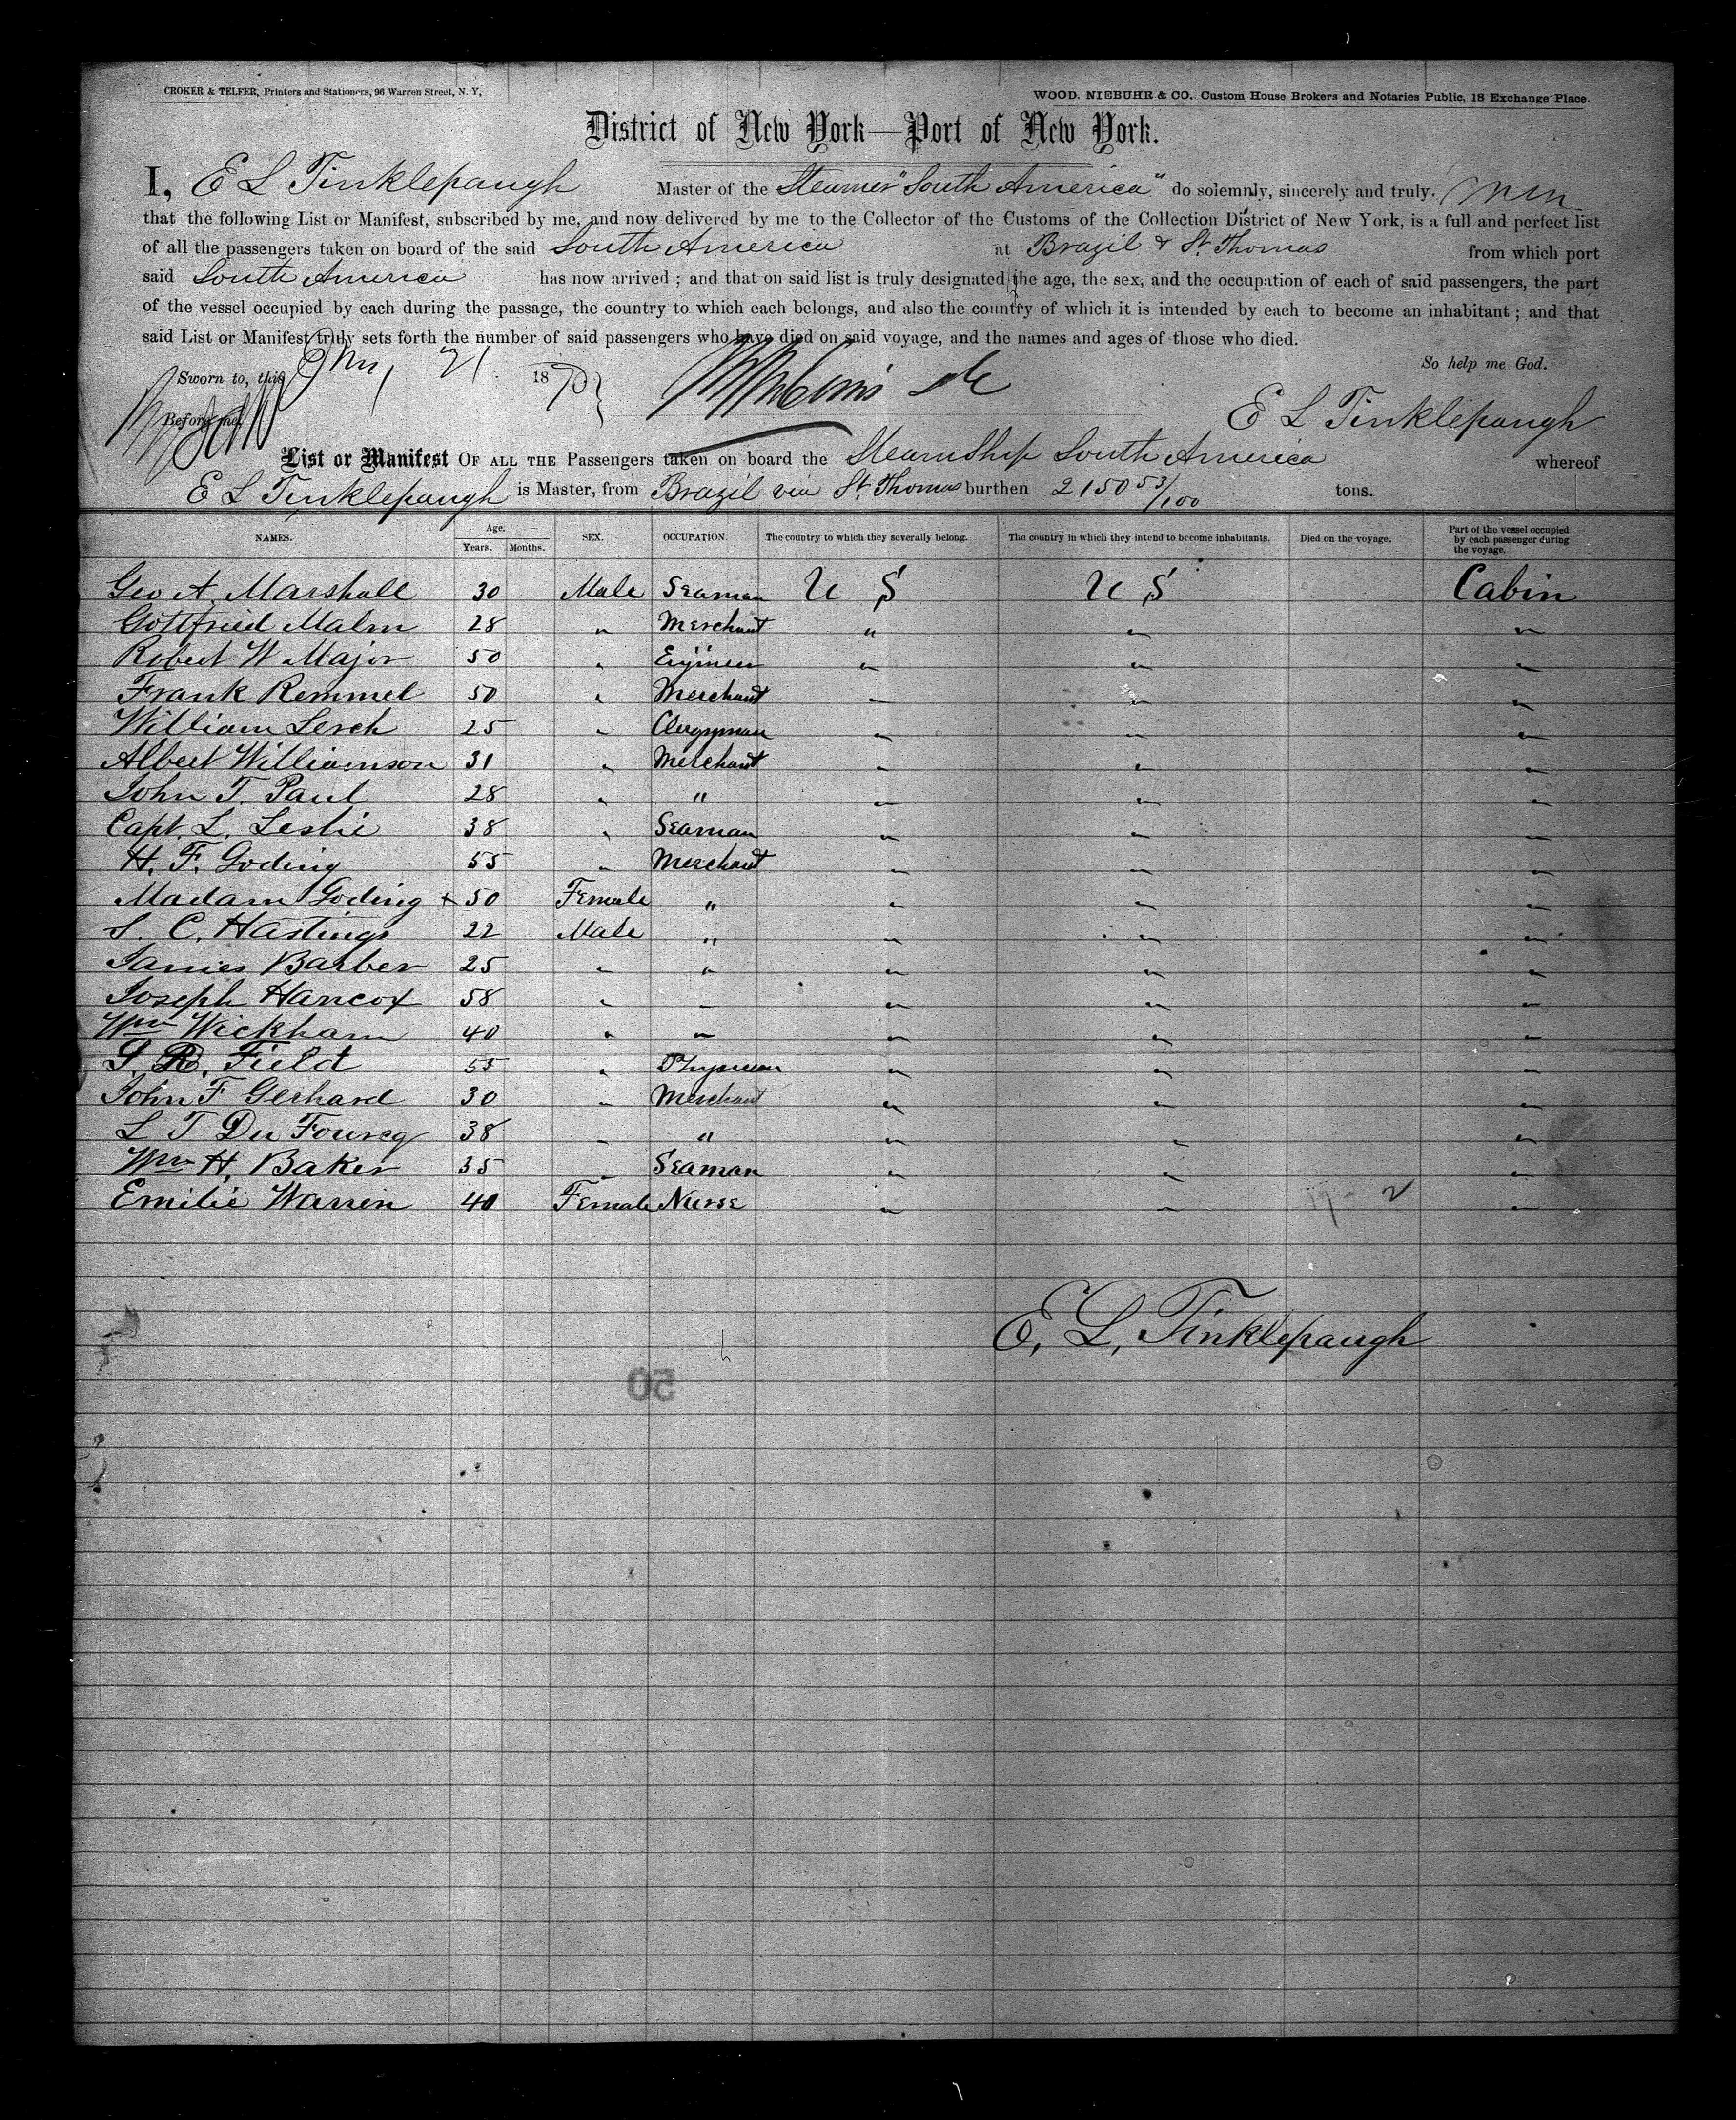 CROKER & TELFER, Printers and Stationers, 96 Warren Street, N. Y,
WOOD. NIEBUHR & CO. Custom House Brokers and Notaries Public, 18 Exchange Place.
District of New York—Port of New York.
I, E L Tinklepaugh Master of the Steamer "South America" do solemnly, sincerely and truly,
that the following List or Manifest, subscribed by me, and now delivered by me to the Collector of the Customs of the Collection District of New York, is a full and perfect list
of all the passengers taken on board of the said South America at Brazil & St. Thomas from which port
said South America has now arrived ; and that on said list is truly designated the age, the sex, and the occupation of each of said passengers, the part
of the vessel occupied by each during the passage, the country to which each belongs, and also the country of which it is intended by each to become an inhabitant ; and that
said List or Manifest truly sets forth the number of said passengers who have died on said voyage, and the names and ages of those who died.
So help me God.
Sworn to, this 21 1870
Before me,
E L Tinklepaugh
List or Manifest OF ALL THE Passengers taken on board the Steamship South America whereof
E L Tinklepaugh is Master, from Brazil via St. Thomas burthen 2150 53/100 tons.
NAMES. Age. Years. Months. SEX. OCCUPATION. The country to which they severally belong. The country in which they intend to become inhabitants. Died on the voyage. Part of the vessel occupied by each passenger during the voyage.
Geo A. Marshall 30 Male Seaman U S U S Cabin
Gottfried Malm 28 " Merchant " " "
Robert W Major 50 " Engineer " " "
Frank Remmel 50 " Merchant " " "
William Lerch 25 " Clergyman " " "
Albert Williamson 31 " Merchant " " "
John T. Paul 28 " " " " "
Capt. L. Leslie 38 " Seaman " " "
H. F. Goding 55 " Merchant " " "
Madam Goding + 50 Female " " " "
S. C. Hastings 22 Male " " " "
James Barber 25 " " " " "
Joseph Hancox 58 " " " " "
Wm Wickham 40 " " " " "
G. R. Field 55 " Physician " " "
John F Gerhard 30 " Merchant " " "
L T Du Fourcq 38 " " " " "
Wm H. Baker 35 " Seaman " " "
Emilie Warren 40 Female Nurse " " "
E. L. Tinklepaugh
50